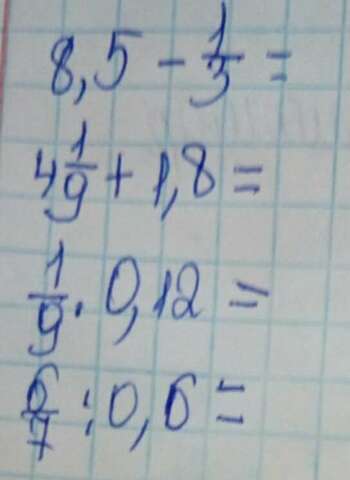 8,5 - 1/3 =
4 1/9 + 1,8 =
1/9 · 0,12 =
6/7 : 0,6 =